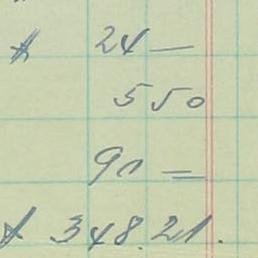 24 —
5 50
90 =
348.21.